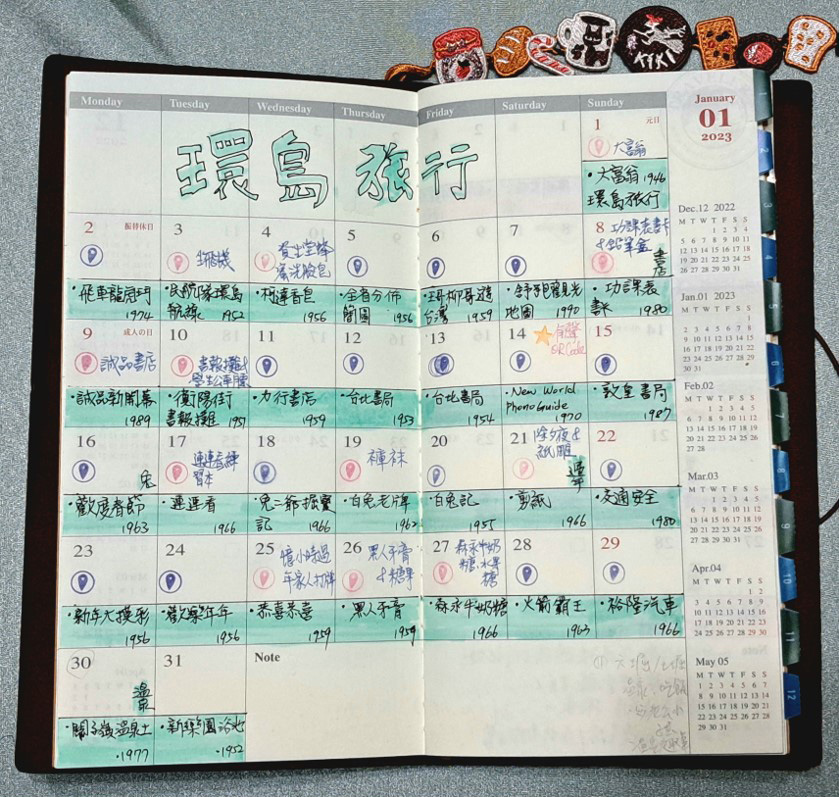 KIKI
Monday Tuesday Wednesday Thursday Friday Saturday Sunday
January
01
2023
環島旅行
1 元日
大富翁
・大富翁 1946
環島旅行
2 振替休日
3
4
5
6
7
8 功課表書卡
&鉛筆盒
書店
・飛車龍虎鬥
1974
・民防隊環島
航線 1952
・柯達香皂
1956
・全省分佈
簡圖 1956
台灣 1959
地圖 1990
・功課表
1980
9 成人の日
誠品書店
10 書報攤&
11
12
13
14 QR Code
15
・誠品新開幕
1989
・衡陽街
書報攤 1951
・力行書店
1959
・台北書局
1953
・台北書局
1954
・New World
Phono Guide
1970
・敦皇書局
1987
16 兔
17 連連看練
習本
18
19 褲袜
20
21 除夕夜&
紙雕
過年
22
・歡度春節
1963
・連連看
1966
・兔二爺掘寶
記 1966
・白兔老牌
・白兔記
1955
・剪紙
1966
・交通安全
1980
23
24
25 憶小時過
年家人打牌
26 黑人牙膏
&糖果
27 森永牛奶
糖、水果
糖
28
29
・新年大摸彩
1956
・歡樂年年
1956
・恭喜恭喜
1959
・黑人牙膏
1959
・森永牛奶糖
1966
・火箭霸王
1963
・裕隆汽車
1966
30 溫泉
31
Note
・關子嶺溫泉
・1977
・新樂園浴池
・1952
Dec.12 2022
M T W T F S S
1 2 3 4
5 6 7 8 9 10 11
12 13 14 15 16 17 18
19 20 21 22 23 24 25
26 27 28 29 30 31
Jan.01 2023
M T W T F S S
1
2 3 4 5 6 7 8
9 10 11 12 13 14 15
16 17 18 19 20 21 22
23 24 25 26 27 28 29
30 31
Feb.02
M T W T F S S
1 2 3 4 5
6 7 8 9 10 11 12
13 14 15 16 17 18 19
20 21 22 23 24 25 26
27 28
Mar.03
M T W T F S S
1 2 3 4 5
6 7 8 9 10 11 12
13 14 15 16 17 18 19
20 21 22 23 24 25 26
27 28 29 30 31
Apr.04
M T W T F S S
1 2
3 4 5 6 7 8 9
10 11 12 13 14 15 16
17 18 19 20 21 22 23
24 25 26 27 28 29 30
May 05
M T W T F S S
1 2 3 4 5 6 7
8 9 10 11 12 13 14
15 16 17 18 19 20 21
22 23 24 25 26 27 28
29 30 31
1
2
3
4
5
6
7
8
9
10
11
12